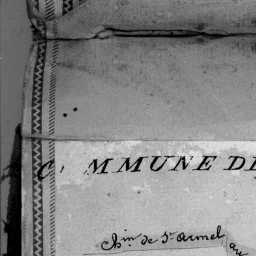 C MMUNE DE
Chin de St Armel au